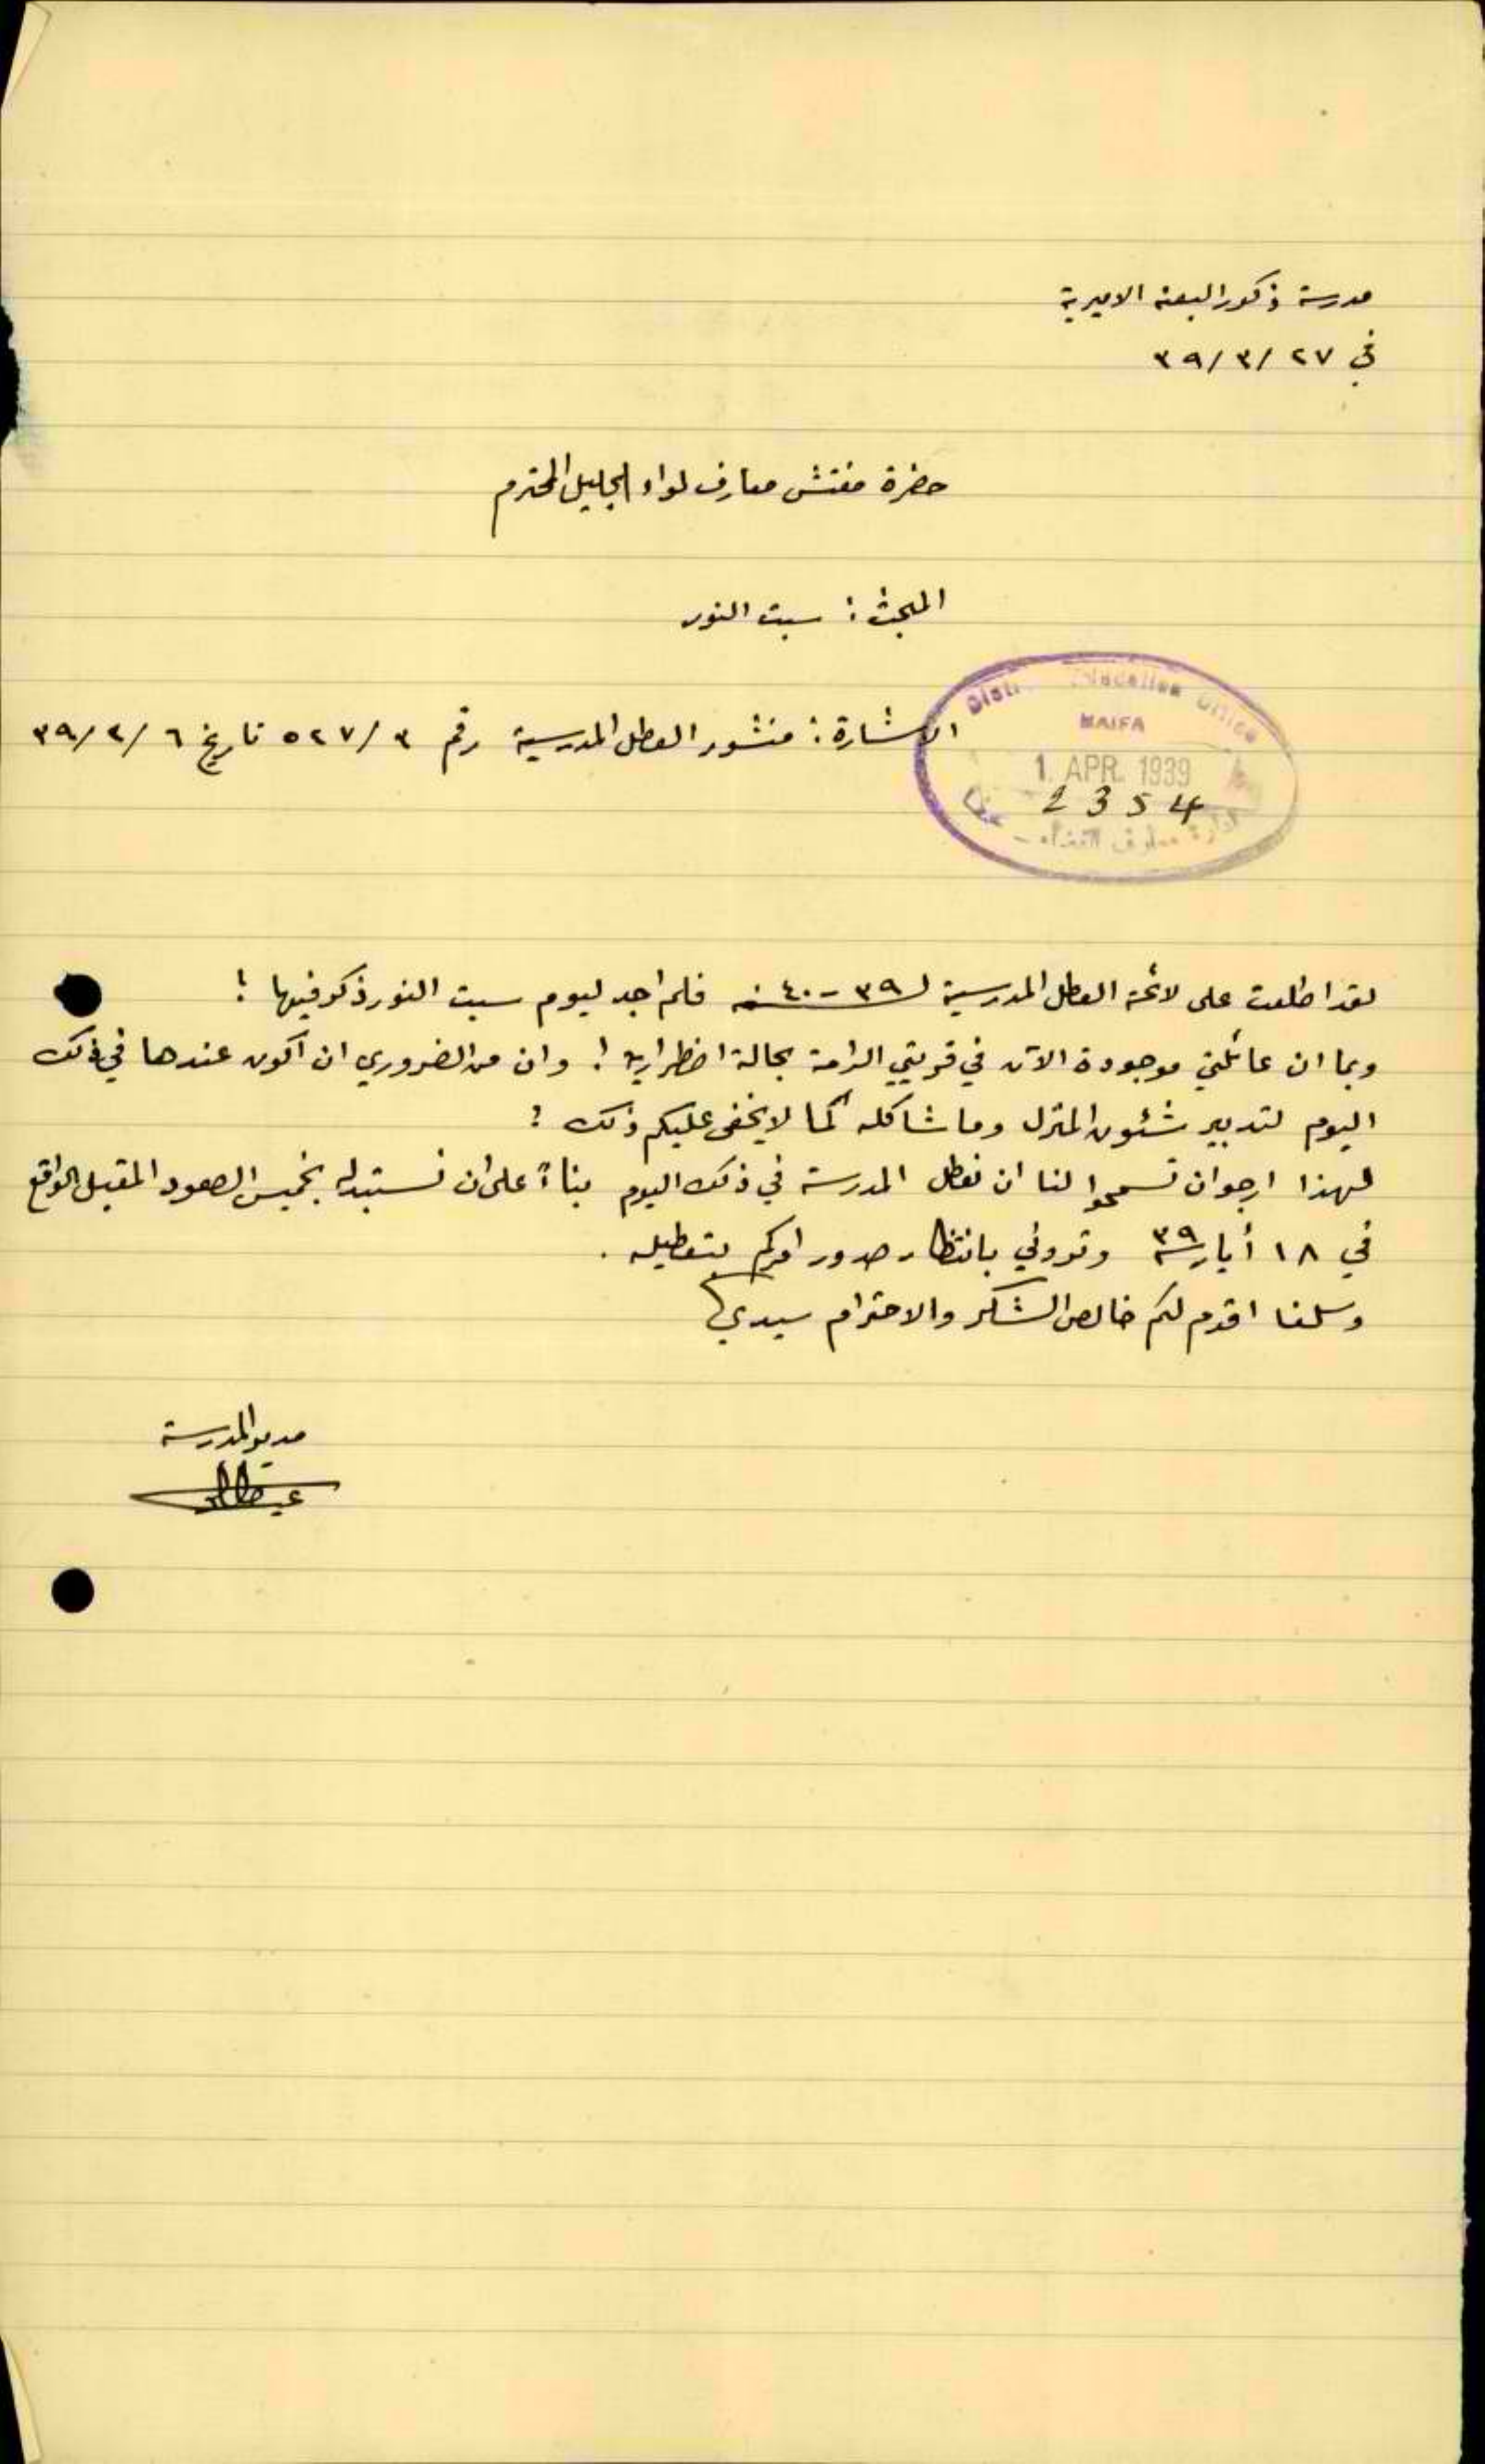 مدرسة ذكور البعنه الاميرية
في ٢٧ /٣ /٣٩
حضرة مفتش معارف لواء الجليل المحترم
المبحث : سبت النور
Office
HAIFA
1. APR. 1939
2354
ادارة معارف القضاء -
الاشارة : منشور العطل المدرسية رقم ٣ /٥٢٧ تاريخ ٦ /٢ /٣٩
لقد اطلعت على لائحة العطل المدرسية لـ ٣٩ - ٤٠ فلم اجد ليوم سبت النور ذكر فيها !
وبما ان عائلتي موجودة الآن في قريتي الرامة بحالة اضطرارية ! وان من الضروري ان اكون عندها في ذلك
اليوم لتدبير شئون المنزل وما شاكله كما لا يخفى عليكم ذلك :
لهذا ارجو ان تسمحوا لنا ان نعطل المدرسة في ذلك اليوم بناءً على ان نستبدله بخميس الصعود المقبل الواقع
في ١٨ أيار ٣٩ وتروني بانتظار صدور امركم بتعطيله .
وسلفا اقدم لكم خالص الشكر والاحترام سيدي
مدير المدرسة